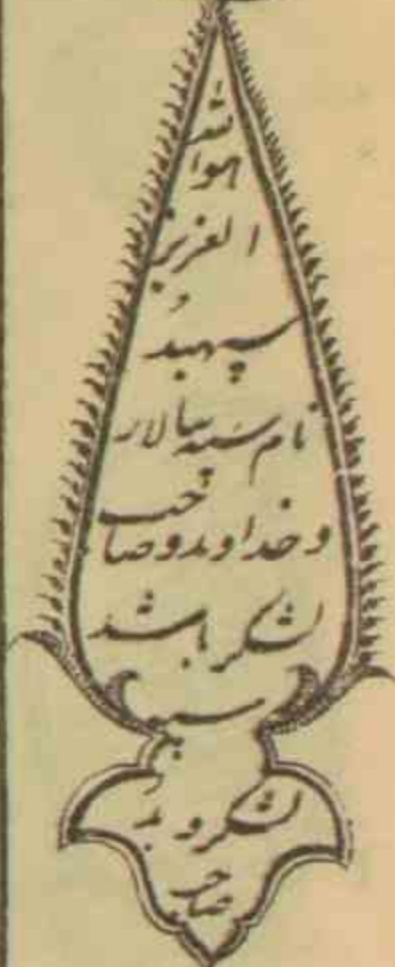 هوالله
العزیز
سپهبدُ
نام سپه سالار
و خداوند و صاحب
لشکر باشد
سپه
لشکر و بُد
صاحب